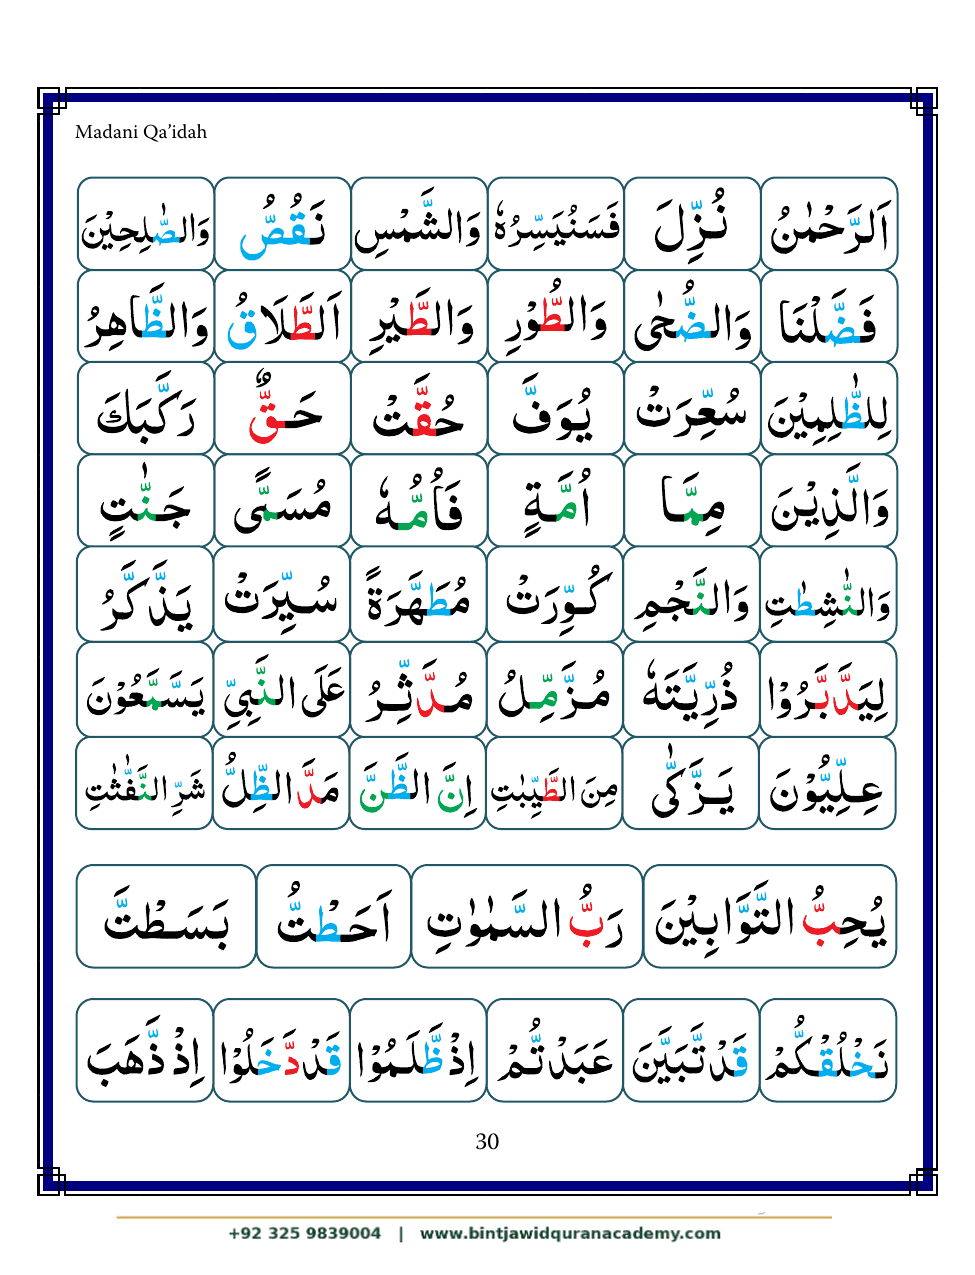 Madani Qa’idah
اَلرَّحْمٰنُ نُزِّلَ فَسَنُيَسِّرُهٗ وَالشَّمْسِ نَقُصُّ وَالصّٰلِحِيْنَ
فَضَّلْنَا وَالضُّحٰى وَالطُّوْرِ وَالطَّيْرِ اَلطَّلَاقُ وَالظَّاهِرُ
لِلظّٰلِمِيْنَ سُعِّرَتْ يُوَفَّ حُقَّتْ حَقٌّ رَكَّبَكَ
وَالَّذِيْنَ مِمَّا اُمَّةٍ فَاُمُّهٗ مُسَمًّى جَنّٰتٍ
وَالنّٰشِطٰتِ وَالنَّجْمِ كُوِّرَتْ مُطَهَّرَةً سُيِّرَتْ يَذَّكَّرُ
لِيَدَّبَّرُوْا ذُرِّيَّتَهٗ مُزَّمِّلُ مُدَّثِّرُ عَلَى النَّبِىِّ يَسَّمَّعُوْنَ
عِلِّيُّوْنَ يَزَّكّٰى مِنَ الطَّيِّبٰتِ اِنَّ الظَّنَّ مَدَّ الظِّلَّ شَرِّ النَّفّٰثٰتِ
يُحِبُّ التَّوَّابِيْنَ رَبُّ السَّمٰوٰتِ اَحَطْتُّ بَسَطْتَّ
نَخْلُقْكُّمْ قَدْ تَّبَيَّنَ عَبَدْتُّمْ اِذْ ظَّلَمُوْا قَدْ دَّخَلُوْا اِذْ ذَّهَبَ
30
+92 325 9839004 | www.bintjawidquranacademy.com